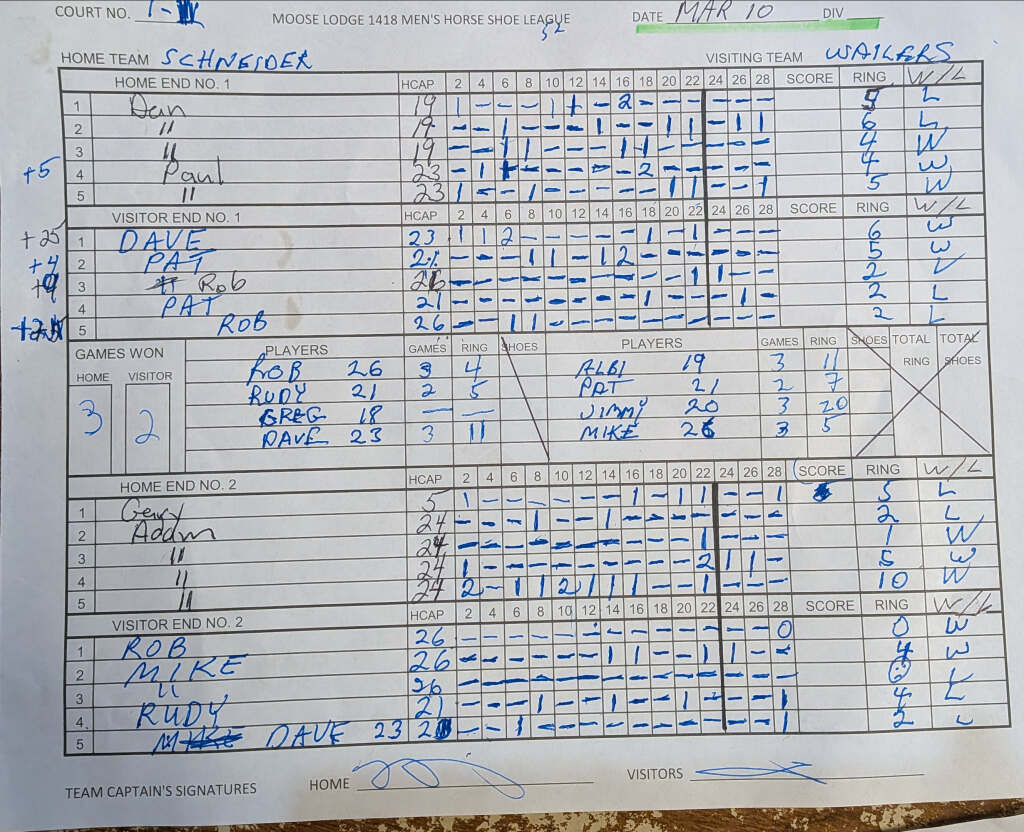 COURT NO. 1-
MOOSE LODGE 1418 MEN'S HORSE SHOE LEAGUE
DATE MAR 10 DIV
HOME TEAM SCHNEIDER VISITING TEAM WAILERS
HOME END NO. 1 HCAP 2 4 6 8 10 12 14 16 18 20 22 24 26 28 SCORE RING W/L
1 Dan 19 1 - - - 1 1 - 2 - - - - - - 5 L
2 " 19 - - 1 - - - 1 - - 1 1 - 1 1 6 L
3 " 19 - - 1 1 - - - 1 1 - - - - - 4 W
+5 4 Paul 23 - 1 1 - - - - - 2 - - - - - 4 W
5 " 23 1 - - 1 - - - - - 1 1 - - 1 5 W
VISITOR END NO. 1 HCAP 2 4 6 8 10 12 14 16 18 20 22 24 26 28 SCORE RING W/L
+25 1 DAVE 23 1 1 2 - - - - - 1 - 1 - - - 6 W
+4 2 PAT 21 - - - 1 1 - 1 2 - - - - - - 5 W
3 " Rob 26 - - - - - - - - - - 1 1 - - 2 L
4 PAT 21 - - - - - - - - 1 - - - 1 - 2 L
5 ROB 26 - - 1 1 - - - - - - - - - - 2 L
GAMES WON PLAYERS GAMES RING SHOES PLAYERS GAMES RING SHOES TOTAL RING TOTAL SHOES
HOME VISITOR
3 2
ROB 26 3 4 ALBI 19 3 11
RUDY 21 2 5 PAT 21 2 7
GREG 18 — — JIMMY 20 3 20
DAVE 23 3 11 MIKE 26 3 5
HOME END NO. 2 HCAP 2 4 6 8 10 12 14 16 18 20 22 24 26 28 SCORE RING W/L
1 Gery 5 1 - - - - - - 1 - 1 1 - - 1 5 L
2 Addm 24 - - - 1 - - 1 - - - - - - - 2 L
3 " 24 - - - - - - - - - - 1 - - - 1 W
4 " 24 1 - - - - - - - - - 2 1 1 - 5 W
5 " 24 2 - 1 1 2 1 1 1 - - 1 - - - 10 W
VISITOR END NO. 2 HCAP 2 4 6 8 10 12 14 16 18 20 22 24 26 28 SCORE RING W/L
1 ROB 26 - - - - - - - - - - - - - 0 0 W
2 MIKE 26 - - - - - - 1 1 - - 1 1 - - 4 W
3 " 26 - - - - - - - - - - - - - - L
4 RUDY 21 - - - 1 - - 1 - - 1 - - - 1 4 L
5 DAVE 23 - - 1 - - - - - - - - - - 1 2 L
TEAM CAPTAIN'S SIGNATURES HOME VISITORS